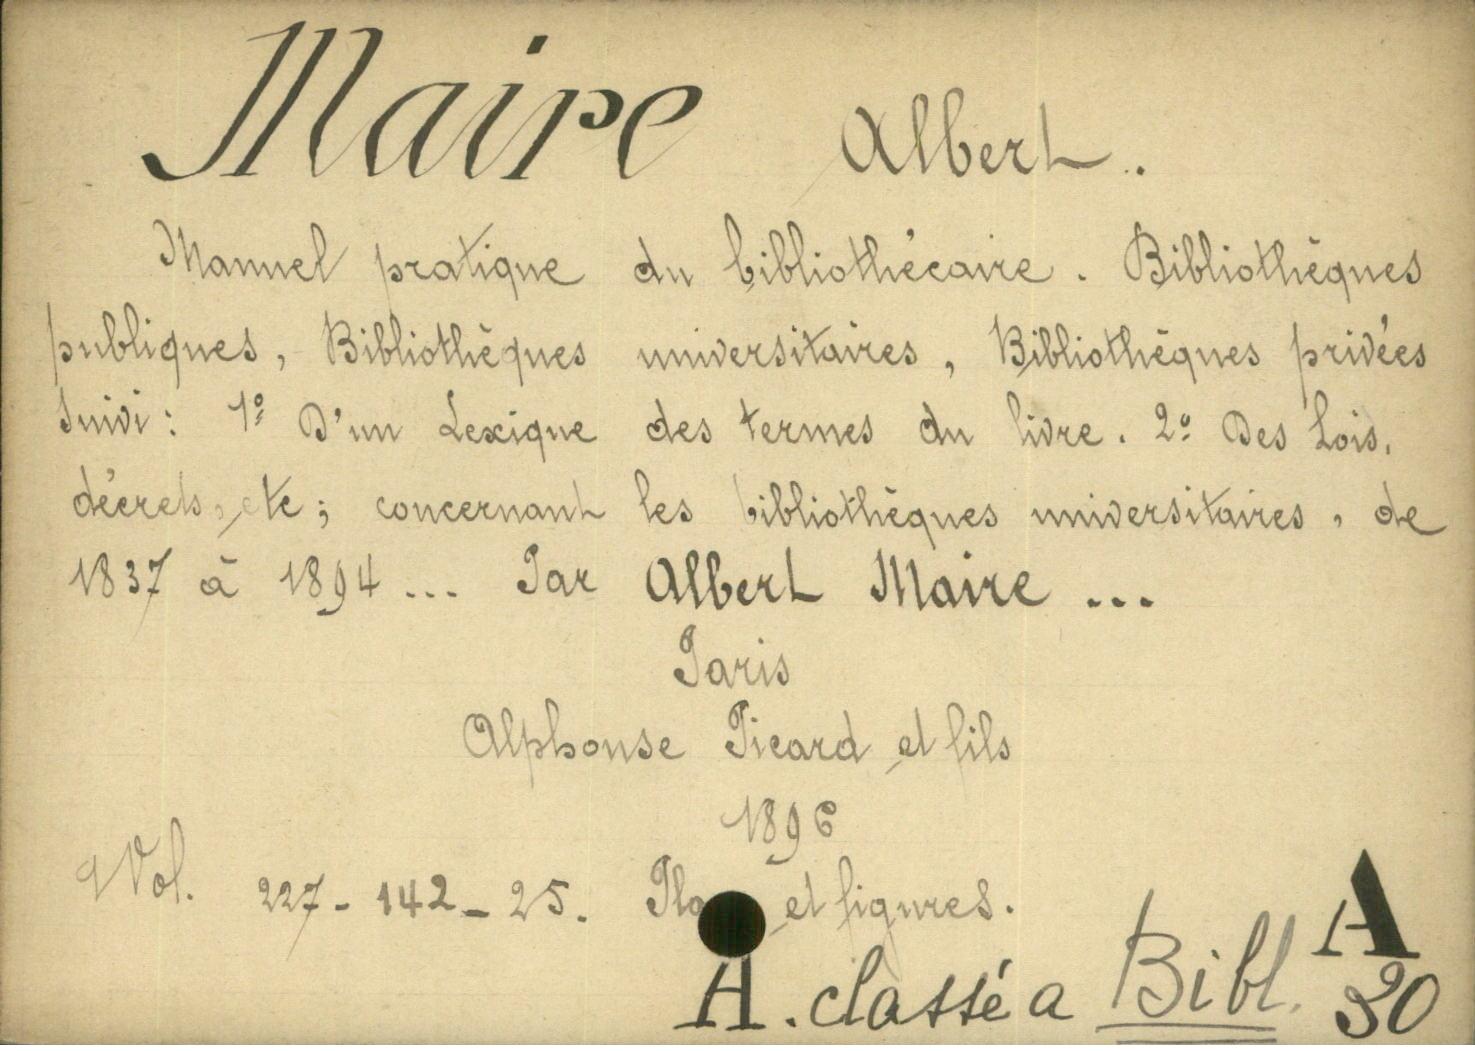 Maire Albert.
Manuel pratique du bibliothécaire. Bibliothèques
publiques, Bibliothèques universitaires, Bibliothèques privées
Suivi : 1º D'un Lexique des termes du livre. 2º Des Lois,
décrets, etc ; concernant les bibliothèques universitaires, de
1837 à 1894... Par Albert Maire ...
Paris
Alphonse Picard et fils
1896
Vol. 227 - 142 - 25. et figures.
A. classé a Bibl. A
30